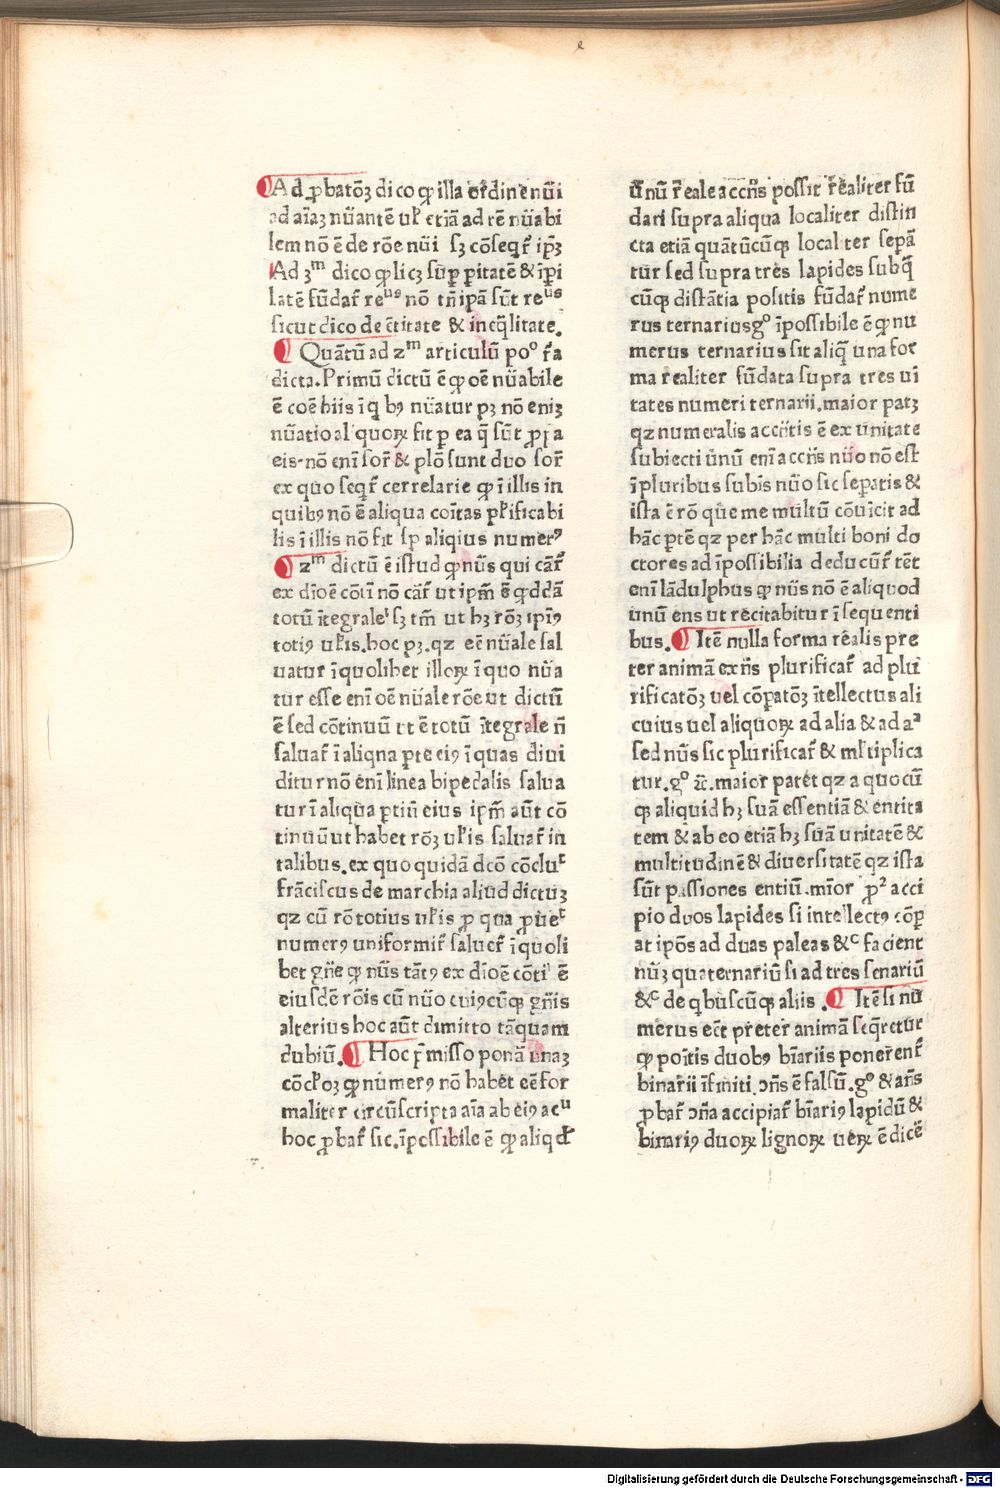 Ad ꝓbatōꝫ dico ꝙ illa ordinē nūi
ad aīaꝫ nūantē ul̓ etiā ad rē nūabi
lem nō ē de rōe nūi sꝫ cōseqr̄ ip̄ꝫ
Ad ꝫᵐ dico ꝙ licꝫ suꝑ ꝑitatē & īꝑi
latē fūdat̄ reᵘˢ nō tn̄ ipā sūt reᵘˢ
sicut dico de ētitate & ineq̄litate.
Quātū ad zᵐ articulū poᵒ r̄a
dicta. Primū dictū ē ꝙ oē nūabile
ē coē hiis ī q̄ bꝰ nūatur pꝫ nō eniꝫ
nūatio al quoꝝ fit ꝑ ea q̄ sūt ꝓp̄a
eis. nō enī sor̄ & plō sunt duo sor̄
ex quo seqr̄ correlarie ꝙ ī illis in
quibꝰ nō ē aliqua coītas pl̓ificabi
lis ī illis nō fit sp aliqius numerꝰ
zᵐ dictū ē istud ꝙ nūs qui cār̄
ex dīoē cōtī nō cār̄ ut ipm̄ ē qddā
totū ītegrale sꝫ tm̄ ut hꝫ rōꝫ ipiꝰ
totiꝰ ul̓is. hoc pꝫ. qz eē nūale sal
uatur ī quolibet illoꝝ ī quo nūa
tur esse enī oē nūale rōe ut dictū
ē sed cōtinuū ut ē totū ītegrale n̄
saluat̄ ī aliqna ꝑte eiꝰ ī quas diui
ditur nō enī linea bipedalis salua
tur ī aliqua ꝑtiū eius ipm̄ aūt cō
tinuū ut habet rōꝫ ul̓is saluat̄ in
talibus. ex quo quidā dcō cōclut
frāciscus de marchia aliud dictuꝫ
qz cū rō totius ul̓is ꝓ qua ꝓuet
numerꝰ uniformit̄ saluet̄ ī quoli
bet gn̄e ꝙ nūs tātꝰ ex dīoē cōti ē
eiusdē rōis cū nūo cuiꝰcūqꝫ gn̄is
alterius hoc aūt dimitto tāquam
dubiū. Hoc p̄misso ponā unaꝫ
cōcl̓oꝫ ꝙ numerꝰ nō habet eē for
maliter circūscripta aīa ab eiꝰ acᵘ
hoc ꝓbat̄ sic. īpossibile ē ꝙ aliqd̄
ūnū r̄eale accn̄s possit r̄ealiter fū
dari supra aliqua localiter distin
cta etiā quātūcūqꝫ local ter sepā
tur sed supra tres lapides subq̄
cūqꝫ distātia positis fūdat̄ nume
rus ternarius gᵒ īpossibile ē ꝙ nu
merus ternarius sit aliq̄ una for
ma realiter fūdata supra tres ui
tates numeri ternarii. maior patꝫ
qz numeralis accn̄tis ē ex unitate
subiecti ūnū enī accn̄s nūo nō est
ī pluribus subis nūo sic seꝑatis &
ista ē rō que me multū cōuicit ad
hāc ꝑtē qz per hāc multi boni do
ctores ad īpossibilia deducūt̄ tēt
enī lādulphus ꝙ nūs nō ē aliquod
unū ens ut recitabitur ī sequenti
bus. Itē nulla forma rēalis pre
ter animā exn̄s plurificat̄ ad plu
rificatōꝫ uel cōpatōꝫ ītellectus ali
cuius uel aliquoꝝ ad alia & ad aᵃ
sed nūs sic plurificat̄ & ml̓tiplica
tur. gᵒ &c. maior patet qz a quocū
qꝫ aliquid hꝫ suā essentiā & entita
tem & ab eo etiā hꝫ suā unitatē &
multitudinē & diuersitatē qz ista
sūt passiones entiū. mīor ꝓᵃ acci
pio duos lapides si intellectꝰ cōꝑ
at ipōs ad duas paleas &ᶜ facient
nūꝫ quaternariū si ad tres senariū
&ᶜ de qbuscūqꝫ aliis. Itē si nu
merus eēt preter animā seqretur
ꝙ poītis duobꝰ bīariis ponerent̄
binarii īfiniti ↄn̄s ē falsū. gᵒ & an̄s
ꝓbat̄ ↄn̄a accipiat̄ bīariꝰ lapidū &
binariꝰ duoꝝ lignoꝝ ueꝝ ē dicē
Digitalisierung gefördert durch die Deutsche Forschungsgemeinschaft - DFG